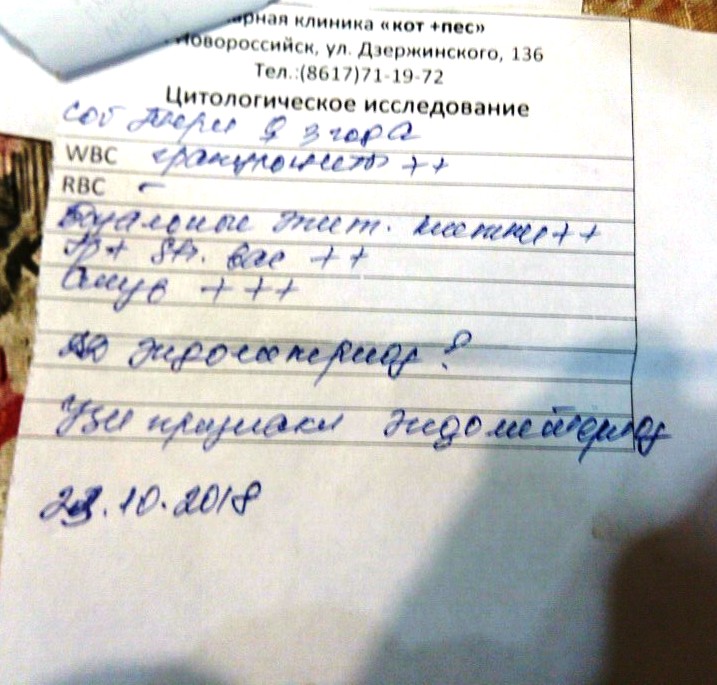 арная клиника «кот +пес»
Новороссийск, ул. Дзержинского, 136
Тел.:(8617)71-19-72
Цитологическое исследование
соб ♀ 3 года
WBC гранулоциты ++
RBC –
эпит. клетки ++
++
Слизь +++
эндометриоз ?
УЗИ признаки эндометриоз
23.10.2018